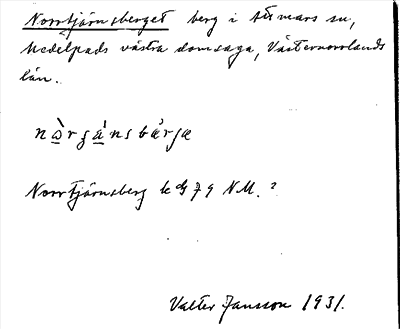 Norrtjärnsberget berg i Attmars sn,
Medelpads västra domsaga, Västernorrlands
län.
Norrtjärnsberg k G 79 NM.?
Valter Jansson 1931.